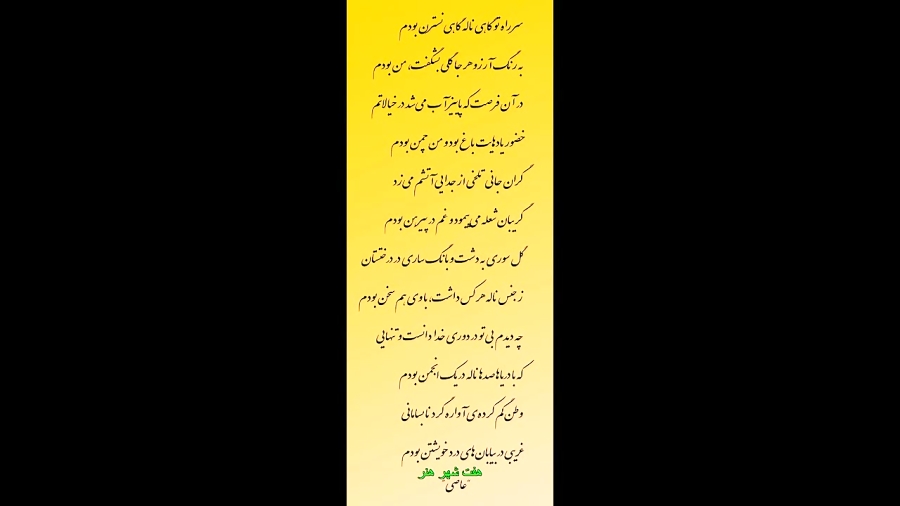 سر راه تو گاهی ناله گاهی نسترن بودم
به رنگ آرزو هر جا گلی بشگفت، من بودم
در آن فرصت که پاییز آب می‌شد در خیالاتم
حضور یادهایت باغ بود و من چمن بودم
گران جانی تلخی از جدایی آتشم می‌زد
گریبان شعله می‌پیمود و غم در پیرهن بودم
گل سوری به دشت و بانگ ساری در درختستان
ز جنس ناله هر کس داشت، با وی هم سخن بودم
چه دیدم بی تو در دوری خدا دانست و تنهایی
که با دریاها صدها ناله در یک انجمن بودم
وطن گم کرده‌ی آواره گرد نابسامانی
غریبی در بیابان‌های درد خویشتن بودم
هفت شهر هنر
"عاصی"